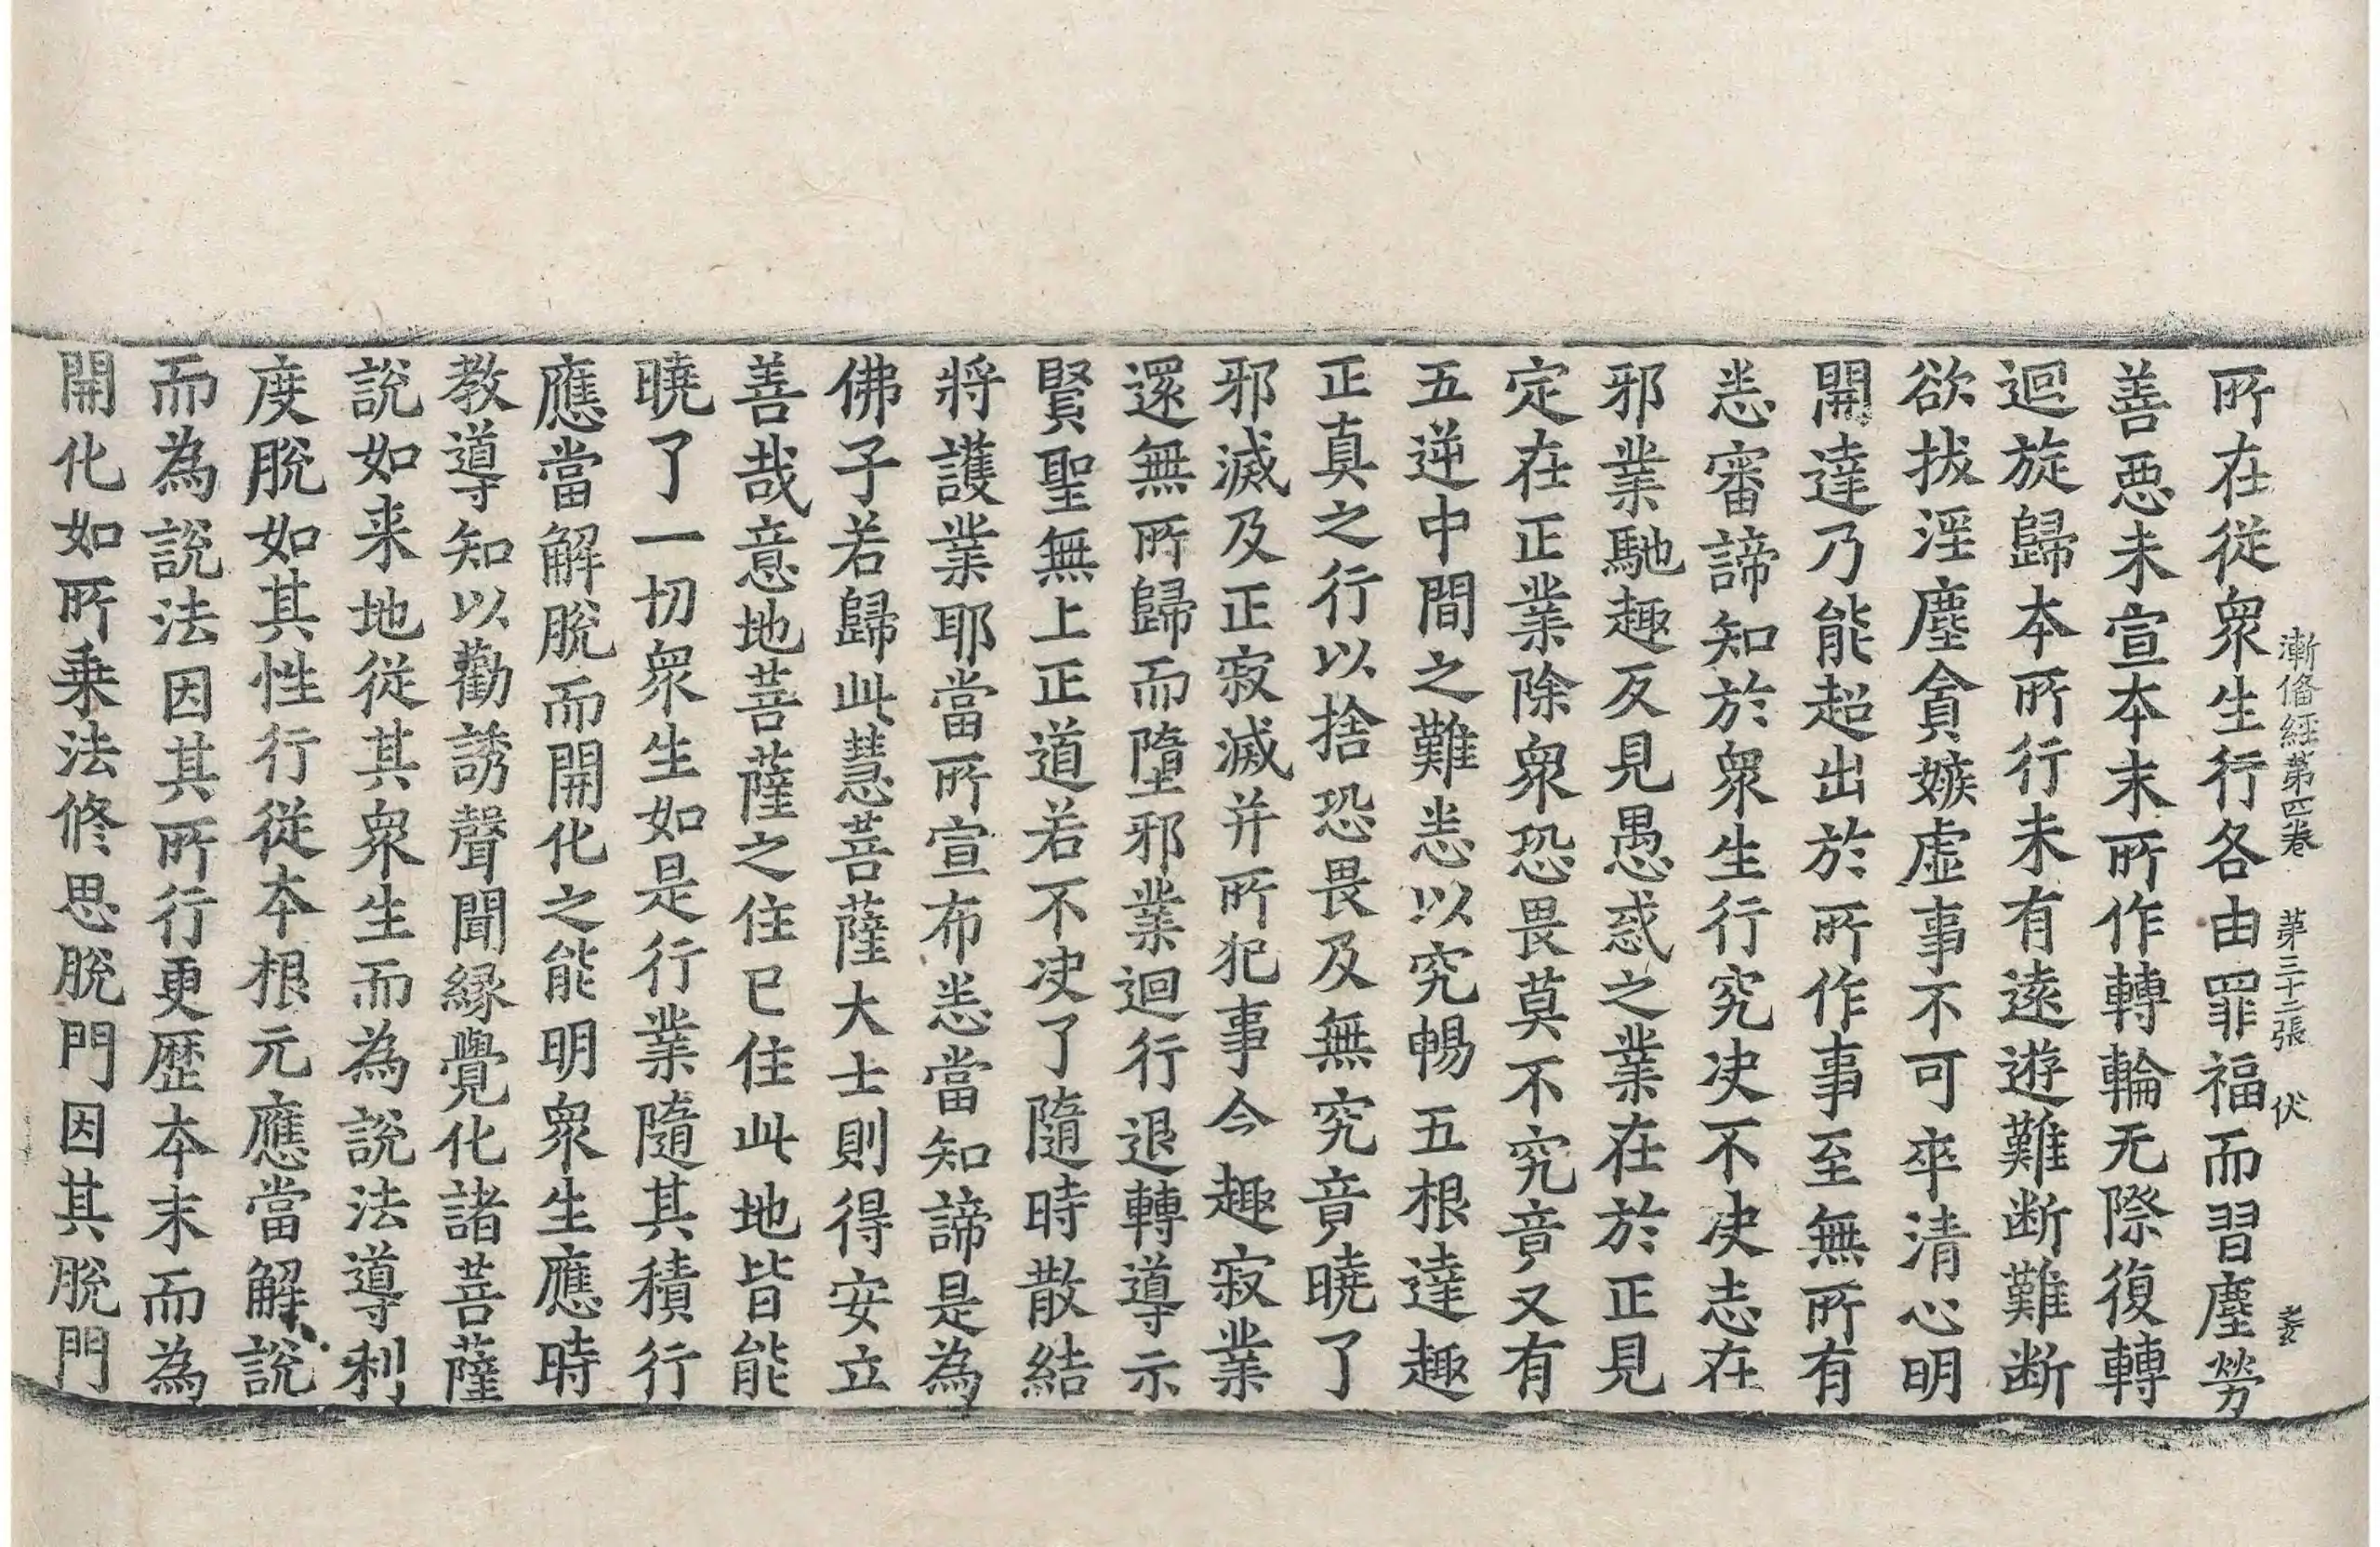 漸俻經第四卷 苐三十二張 伏
所在從衆生行各由罪福而習塵勞
善惡未宣本末所作轉輪无際復轉
迴旋歸本所行未有遠遊難断難断
欲拔淫塵貪嫉虚事不可卒清心明
開達乃能超出於所作事至無所有
恙審諦知於衆生行究决不决志在
邪業馳趣反見愚惑之業在於正見
定在正業除衆恐畏莫不究竟又有
五逆中間之難恙以究暢五根達趣
正真之行以捨恐畏及無究竟曉了
邪滅及正寂滅并所犯事今趣寂業
還無所歸而墮邪業迴行退轉導示
賢聖無上正道若不决了隨時散結
將護業耶當所宣布恙當知諦是為
佛子若歸此慧菩薩大士則得安立
善哉意地菩薩之住已住此地皆能
曉了一切衆生如是行業隨其積行
應當解脫而開化之能明衆生應時
教導知以勸誘聲聞緣覺化諸菩薩
說如来地從其衆生而為說法導利
度脫如其性行從本根元應當解說
而為說法因其所行更歷本末而為
開化如所乗法修思脫門因其脫門